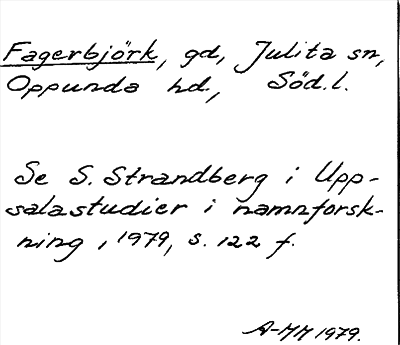 Fagerbjörk, gd, Julita sn,
Oppunda hd., Söd.l.
Se S. Strandberg i Upp-
salastudier i namnforsk-
ning, 1979, s. 122 f.
A-MM 1979.